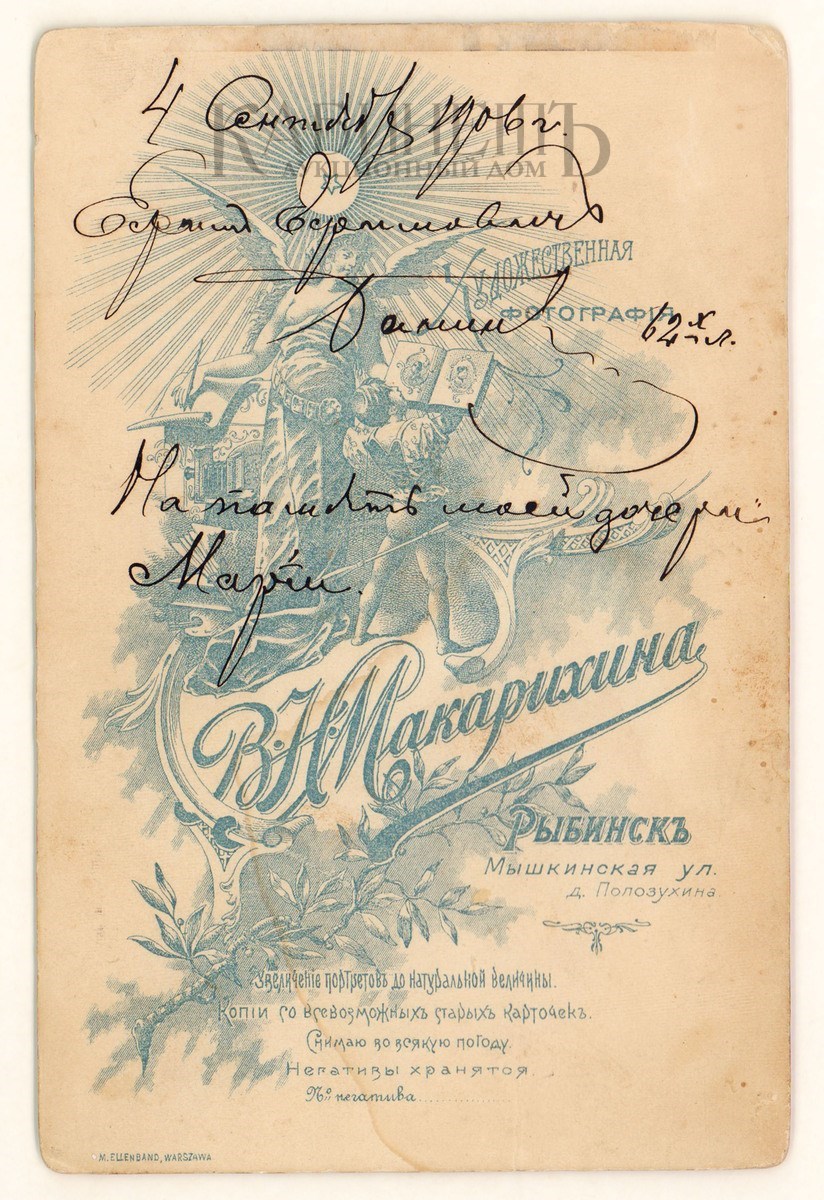 4 Сентября 1906 г.
КАБИНЕТЪ
АУКЦИОННЫЙ ДОМ
ХУДОЖЕСТВЕННАЯ
ФОТОГРАФІЯ
62х л.
На память моей дочери
Маріи.
В. Н. Макарихина
РЫБИНСКЪ
Мышкинская ул.
д. Полозухина
Увеличеніе портретовъ до натуральной величины.
Копіи со всевозможныхъ старыхъ карточекъ.
Снимаю во всякую погоду.
Негативы хранятся.
№ негатива
M. ELLENBAND, WARSZAWA